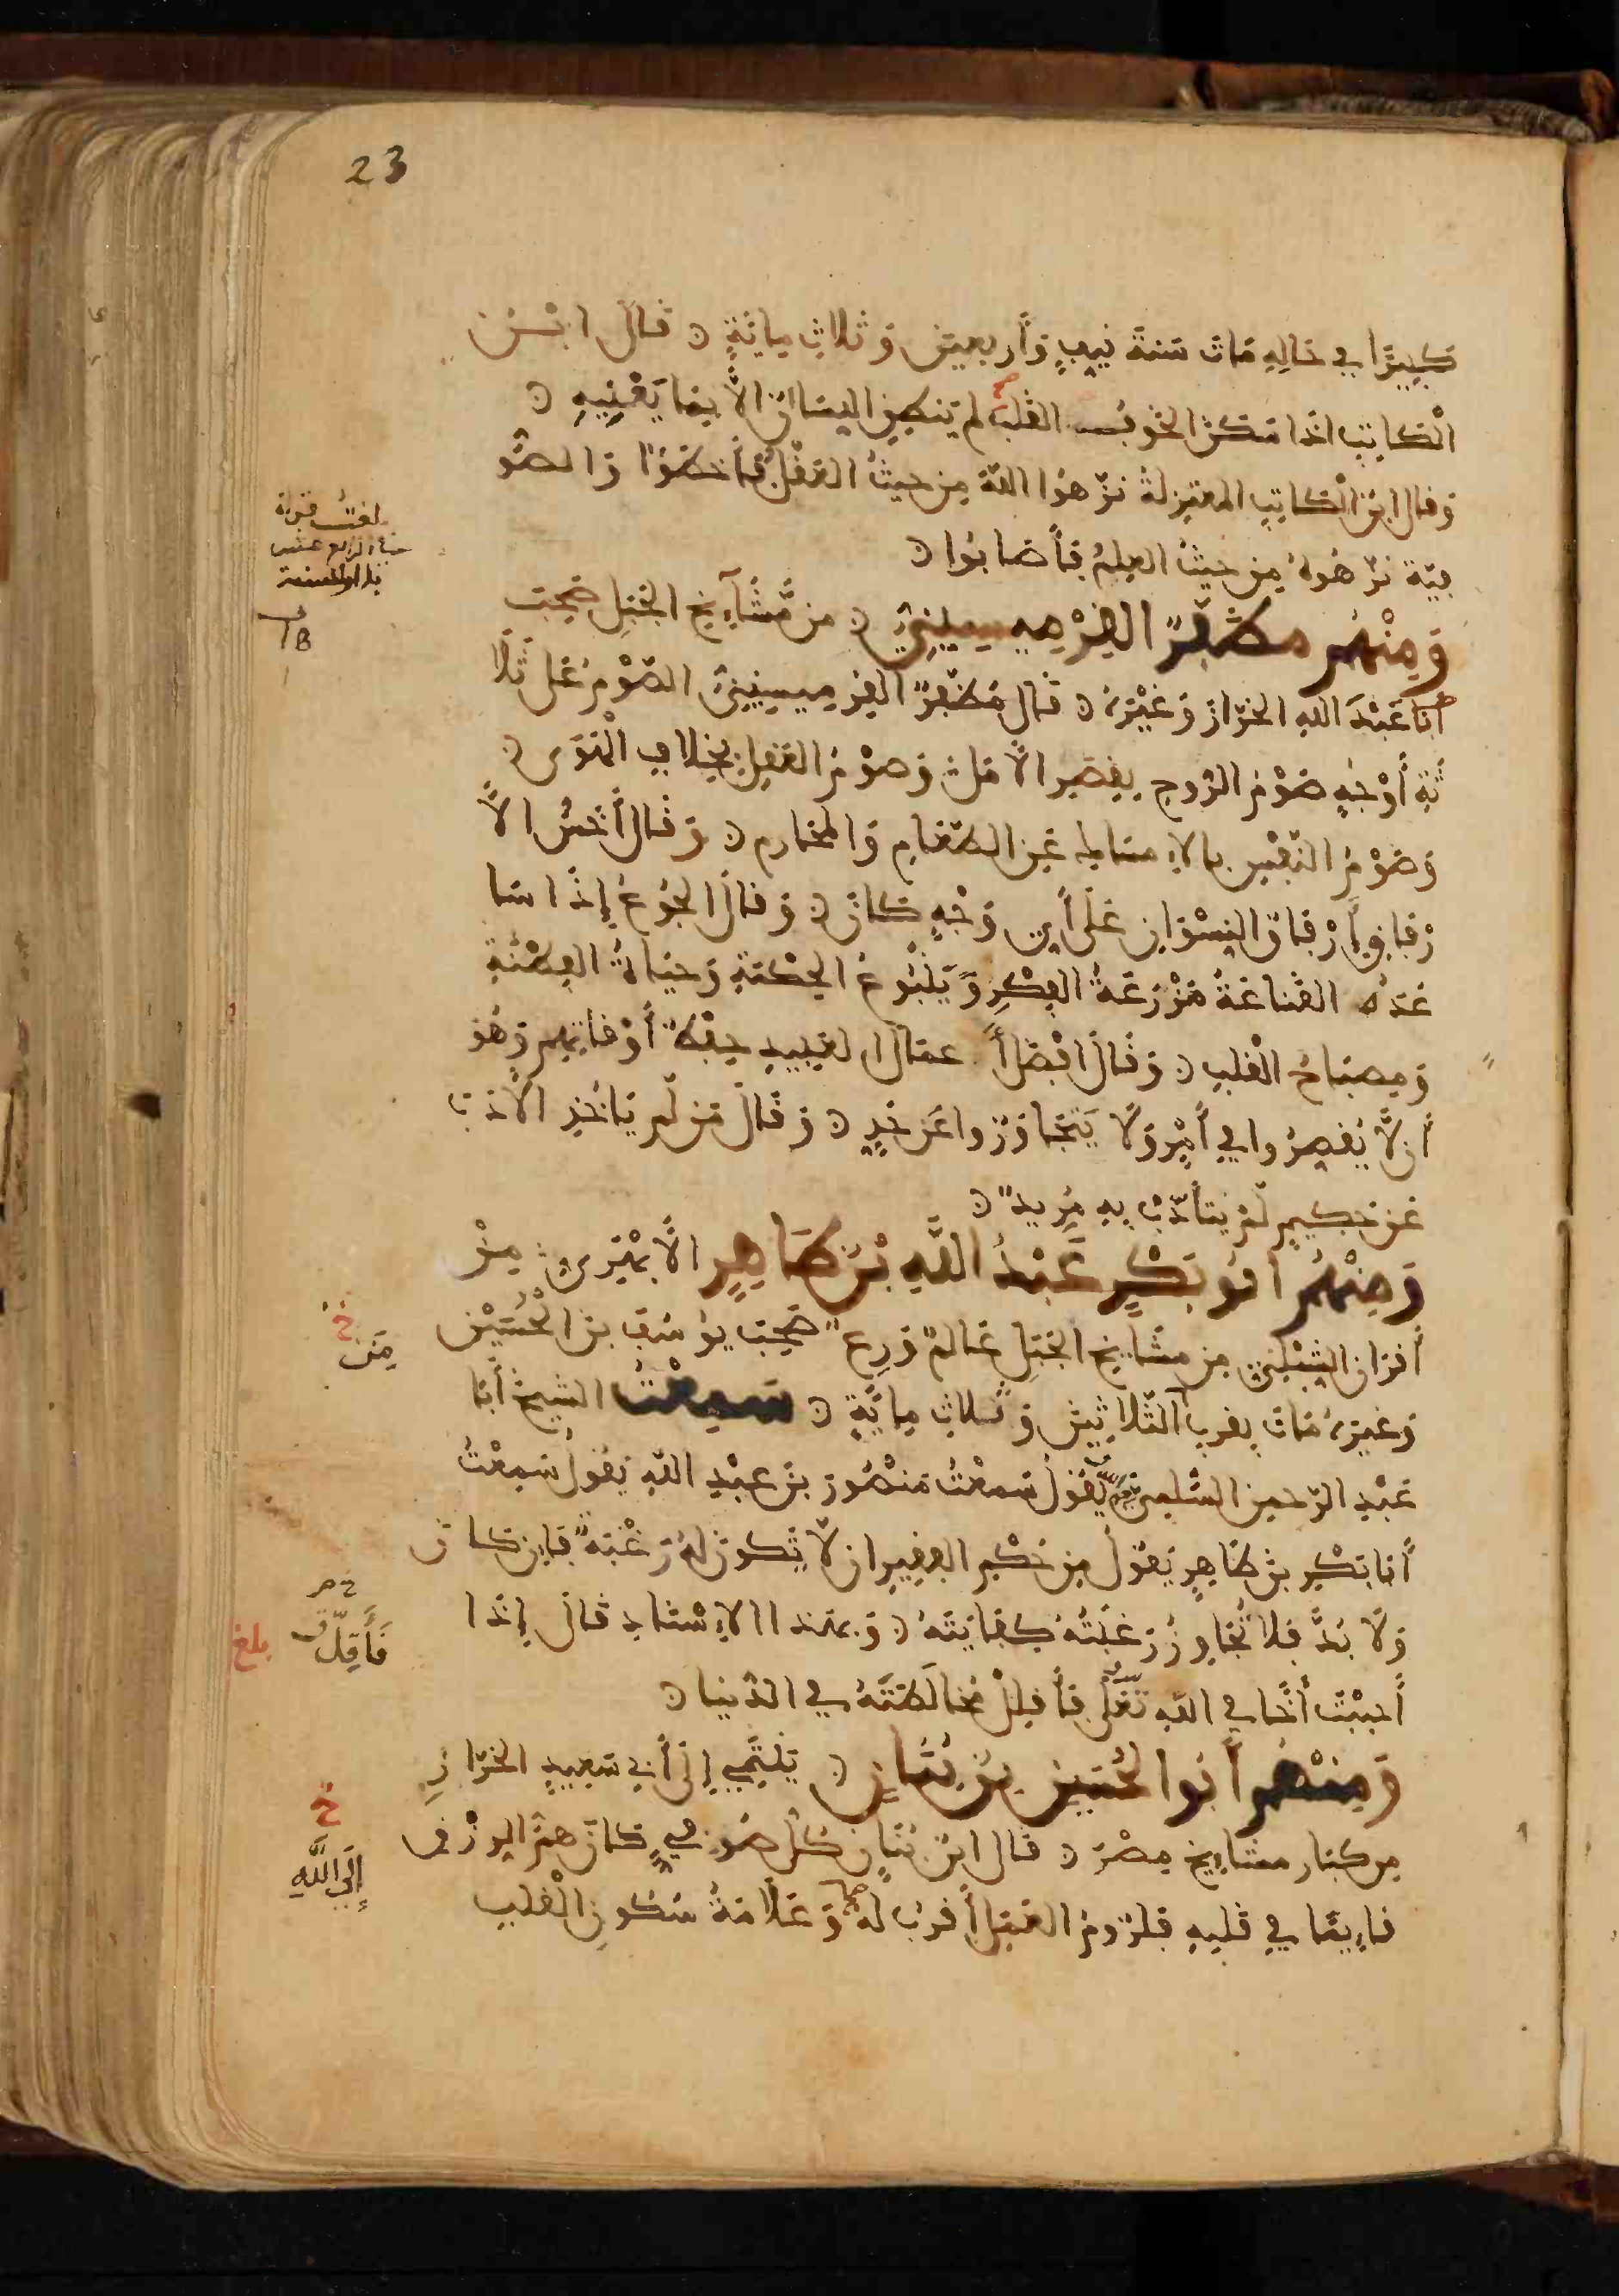 23
كَبِيرًا في حَالِهِ مَاتَ سَنَةَ نَيِّفٍ وَأَربعينَ وَثَلاثِ مِائَةٍ قَالَ ابْنُ
الْكَاتِبِ اذا سَكَنَ الخَوفُ القَلْبَ لم يَنطِقِ اللِسَانُ الَّا بِمَا يَعْنِيهِ
وَقال ابنُ الْكَاتِبِ المعتزِلةُ نَزَّهُوا اللهَ مِن حيثُ العَقْلُ فَأَخطَؤُا وَالصُّو
فِيَّةُ نزَّهُوهُ مِن حَيثُ العِلمُ فَأَصَابُوا
وَمِنْهُم مُظَفَّرٌ القِرْمِيسِينِيُّ من مَّشَآيِخِ الجَبَلِ صَحِبَ
ابَا عَبْدَ اللهِ الخرَّازَ وَغَيْرَهُ قَالَ مُظَفَّرٌ القِرمِيسِينِيُّ الصَّوْمُ عَلى ثَلَا
ثَةِ أَوْجُهٍ صَوْمُ الرُّوحِ بِقِصَرِ الأَمَلِ وَصَوْمُ العَقلِ بِخِلَافِ الْهَوَى
وَصَوْمُ النَّفْسِ بالاِمسَاكِ عَنِ الطَّعَامِ وَالمَحَارِمِ وَقَالَ أَخَسُّ الأَ
رْفَاقِ إِرْفَاقُ النِسْوَانِ عَلَى أَيِّ وَجْهٍ كَانَ وَقَالَ الجُوعُ إِذَا سَا
عَدَتْهُ القَنَاعَةُ مَزْرَعَةُ الفِكْرِ وَيَنْبُوعُ الحِكْمَةِ وَحَيَاةُ الفِطْنَةِ
وَمِصبَاحُ الْقَلبِ وَقَالَ افْضَلُ أَعمَالِ العَبِيدِ حِفْظُ أَوْقَاتِهِم وَهُوَ
أن لَّا يُقَصِّرُوا في أَمْرٍ وَلَا يَتَجَاوَزُوا عَن حَدٍّ وَقَالَ مَن لَّم يَاخُذِ الأَدَبَ
عَن حَكِيمٍ لَم يَتَأَدَّبْ بِهِ مُرِيدٌ
وَمِنْهُم أبُو بَكْرٍ عَبْدُ اللَّهِ بْنُ طَاهِرٍ الأَبْهَرِيُّ مِنْ
أَقرَانِ الشِّبْلِيِّ مِن مَشَايخِ الجَبَلِ عَالمٌ وَرِعٌ صَحِبَ يوُسُفَ بنَ الْحُسَيْنِ
وَغيرَهُ مَاتَ بِقربِ الثَّلَاثِينَ وَثَلاثِ مِايَّةٍ سَمِعْتُ الشيخَ أَبَا
عَبْدِ الرَّحمنِ السُّلَمِيَّ يَّقُولُ سَمِعْتُ مَنْصُورَ بنَ عَبْدِ اللهِ يَقُولُ سَمِعْتُ
أَبَا بَكْرِ بنَ طَاهِرٍ يَقُولُ مِن حُكْمِ الفَقِيرِ ان لَّا يَكونَ لَهُ رَغْبَةٌ فَإِن كَانَ
وَلَا بُدَّ فَلا تُجَاوِزُ رَغْبَتُهُ كِفَايَتَهُ وَبهَذَا الاِسْنَادِ قَالَ إِذَا
أَحبَبْتَ أَخًا في اللهِ تَعَلَى فَأَقلِلْ مُخَالَطَتَهُ في الدُّنيَا
وَمِنْهُم أَبُو الحُسَينِ بنُ بُنَانٍ يَنْتَمِي إِلَى أَبي سَعِيدٍ الخَرَّازِ
مِن كِبَارِ مشَايخِ مِصْرَ قَال ابنُ بُنَانٍ كُلُّ صُوفيٍّ كَانَ هَمُّ الرِزْقِ
قَايِمًا في قَلبِهِ فَلُزُومُ العَمَلِ أَقرَبُ لَهُ وَعَلَامَةُ سُكُونِ الْقَلبِ
خ
مَن
خ
فَأَقِلَّ
بلغ
خ
إِلَى اللَّهِ